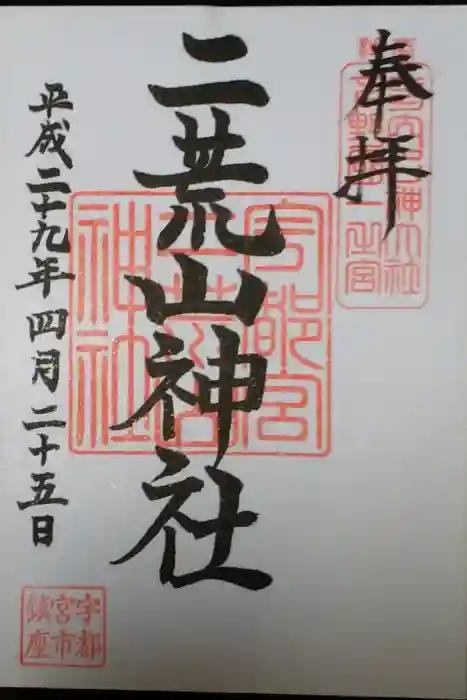 奉拝
二荒山神社
宇都宮
二荒山
神社
平成二十九年四月二十五日
宇都
宮市
鎮座